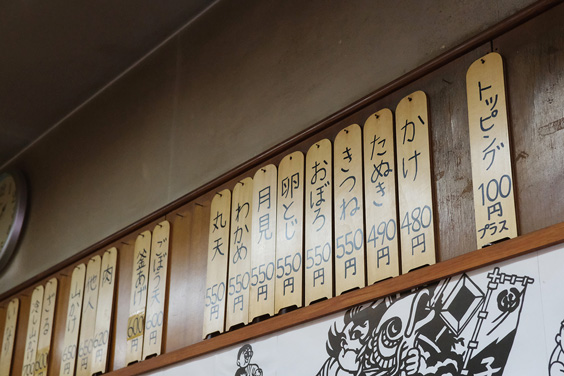 トッピング
100円
プラス
かけ
480円
たぬき
490円
きつね
550円
おぼろ
550円
卵とじ
550円
月見
550円
わかめ
550円
丸天
550円
ごぼう天
600円
釜あげ
600
肉
他人
山かけ